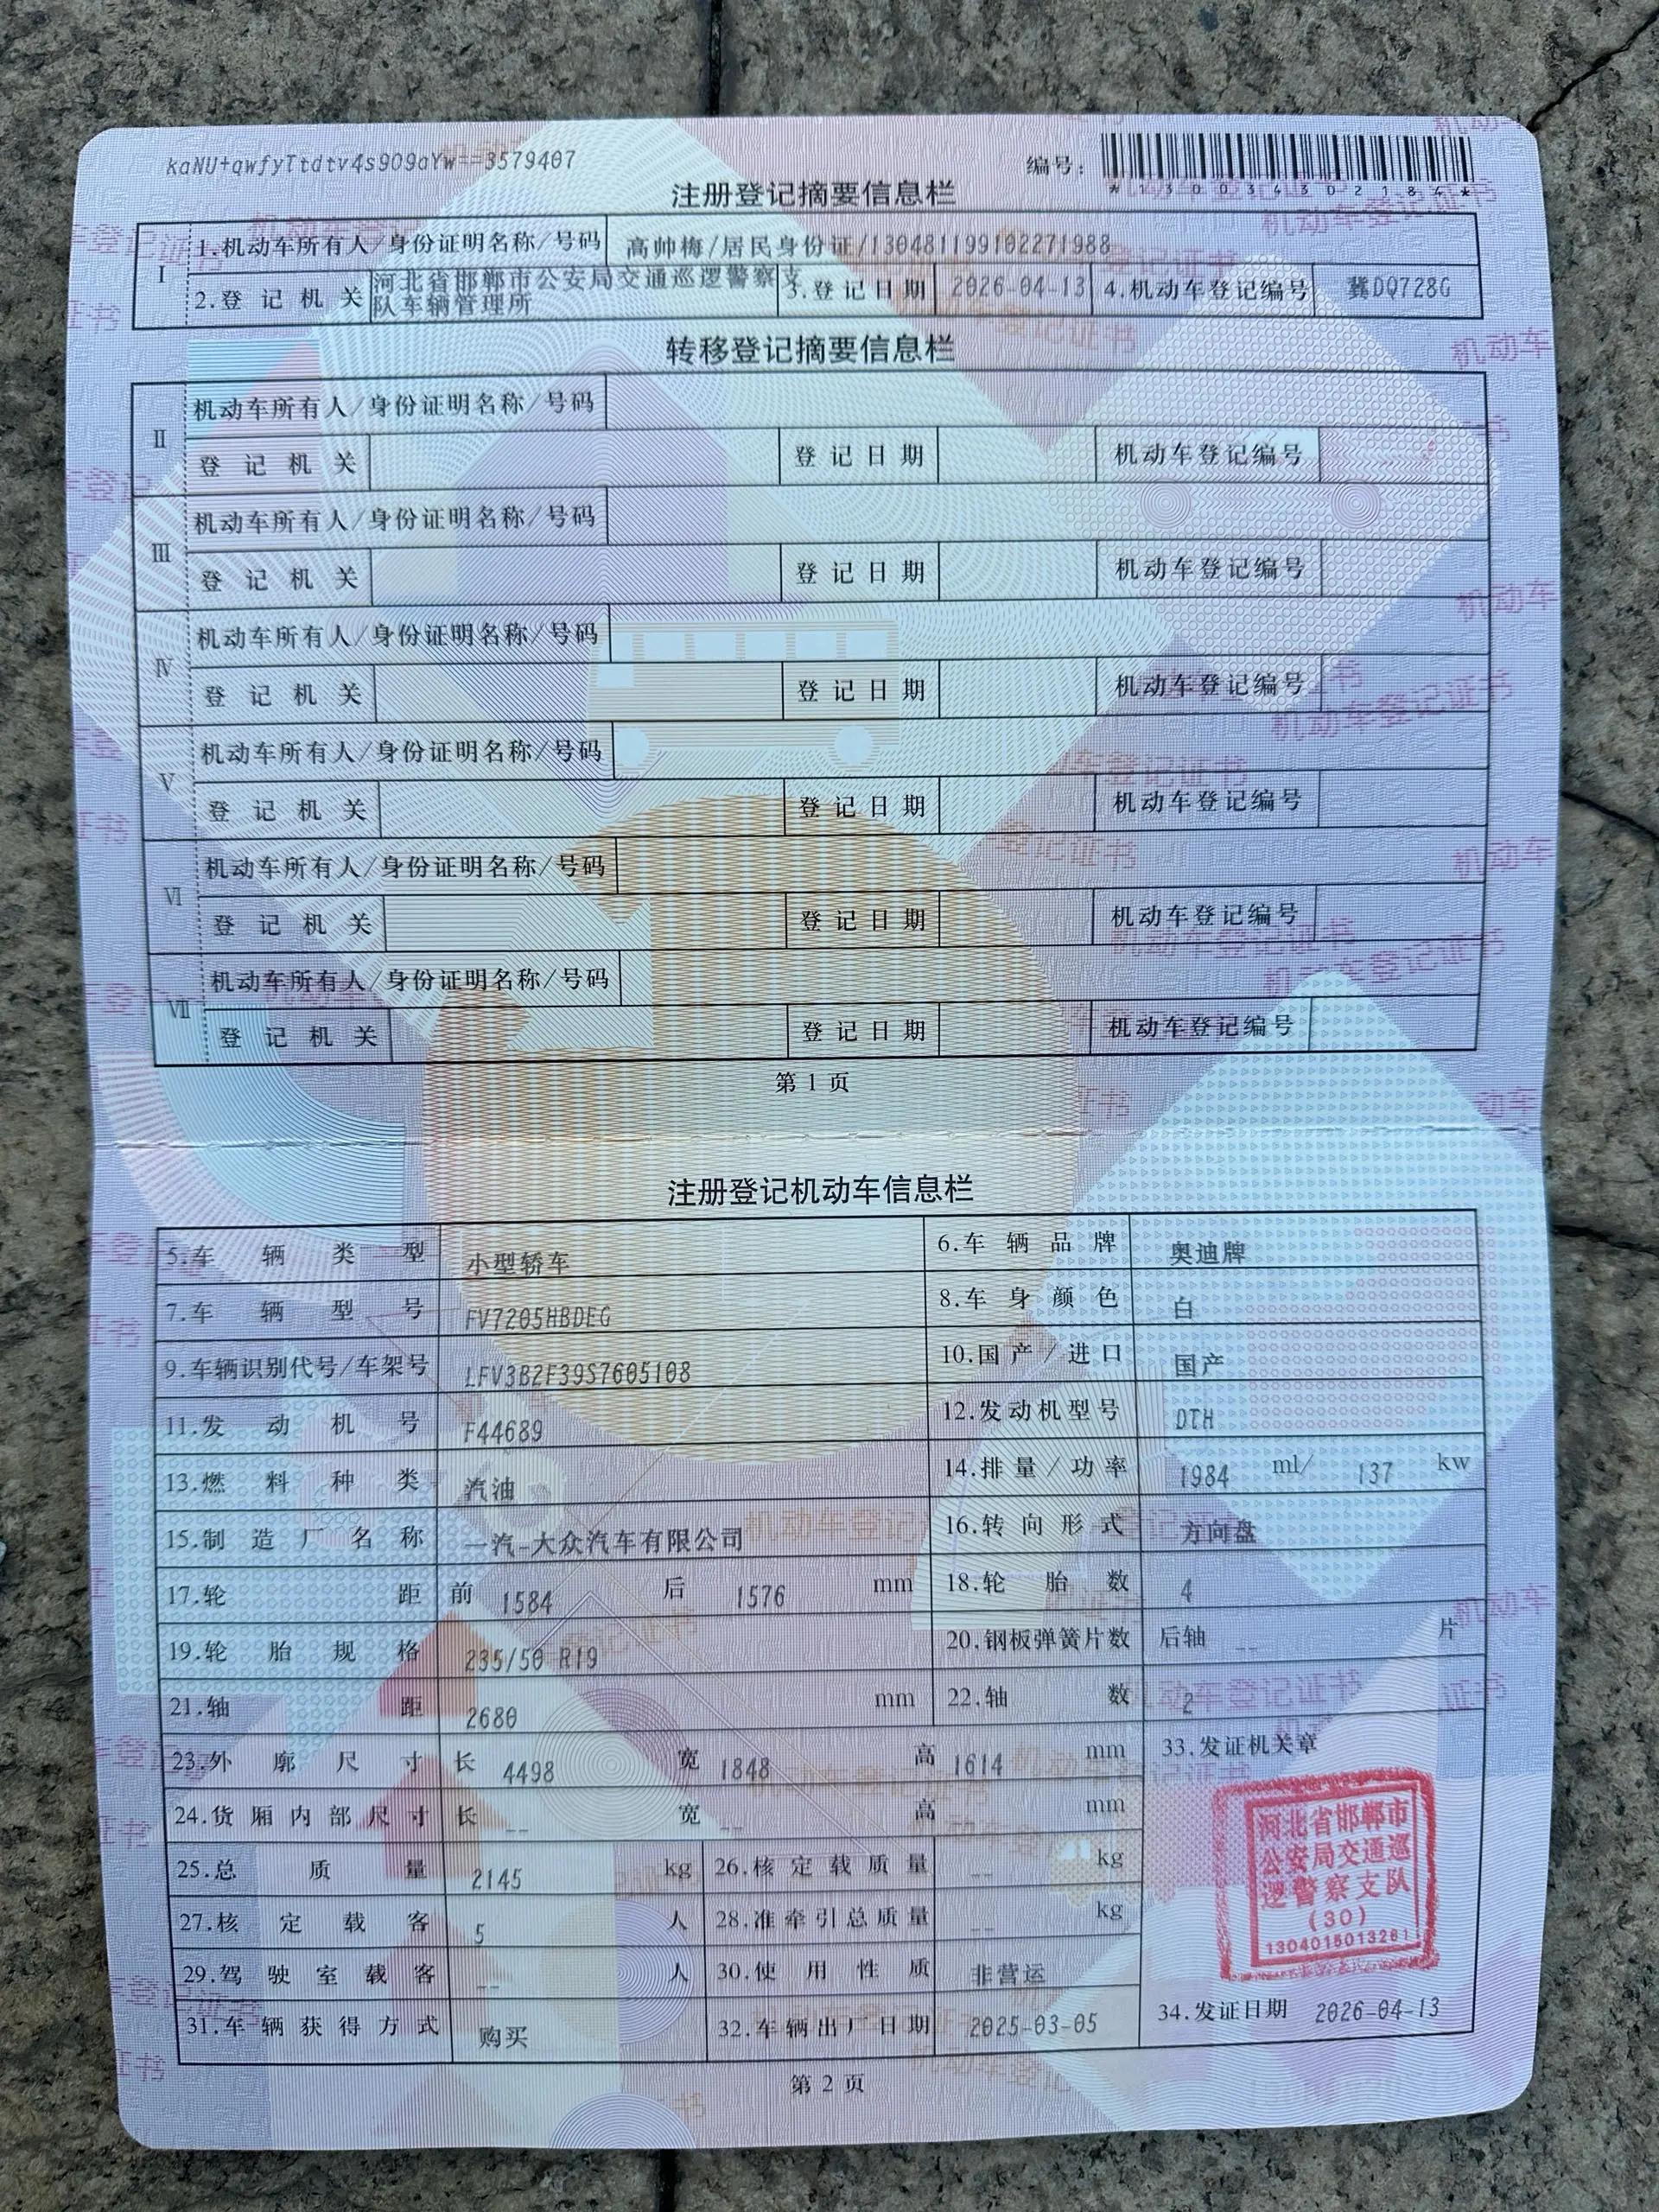 kaNU+qwfyTtdtv4s9O9aYw==3579407
编号：
*130034302184*
注册登记摘要信息栏
I 1.机动车所有人/身份证明名称/号码 高帅梅/居民身份证/130481199102271988
2.登记机关 河北省邯郸市公安局交通巡逻警察支队车辆管理所 3.登记日期 2026-04-13 4.机动车登记编号 冀DQ728G
转移登记摘要信息栏
II 机动车所有人/身份证明名称/号码
登记机关 登记日期 机动车登记编号
III 机动车所有人/身份证明名称/号码
登记机关 登记日期 机动车登记编号
IV 机动车所有人/身份证明名称/号码
登记机关 登记日期 机动车登记编号
V 机动车所有人/身份证明名称/号码
登记机关 登记日期 机动车登记编号
VI 机动车所有人/身份证明名称/号码
登记机关 登记日期 机动车登记编号
VII 机动车所有人/身份证明名称/号码
登记机关 登记日期 机动车登记编号
第1页
注册登记机动车信息栏
5.车辆类型 小型轿车 6.车辆品牌 奥迪牌
7.车辆型号 FV7205HBDEG 8.车身颜色 白
9.车辆识别代号/车架号 LFV3B2F39S7605108 10.国产/进口 国产
11.发动机号 F44689 12.发动机型号 DTH
13.燃料种类 汽油 14.排量/功率 1984 ml/ 137 kw
15.制造厂名称 一汽-大众汽车有限公司 16.转向形式 方向盘
17.轮距 前 1584 后 1576 mm 18.轮胎数 4
19.轮胎规格 235/50 R19 20.钢板弹簧片数 后轴 -- 片
21.轴距 2680 mm 22.轴数 2
23.外廓尺寸 长 4498 宽 1848 高 1614 mm 33.发证机关章
24.货厢内部尺寸 长 -- 宽 -- 高 -- mm
25.总质量 2145 kg 26.核定载质量 -- kg
27.核定载客 5 人 28.准牵引总质量 -- kg
29.驾驶室载客 -- 人 30.使用性质 非营运
31.车辆获得方式 购买 32.车辆出厂日期 2025-03-05 34.发证日期 2026-04-13
河北省邯郸市
公安局交通巡
逻警察支队
(30)
1304015013261
第2页